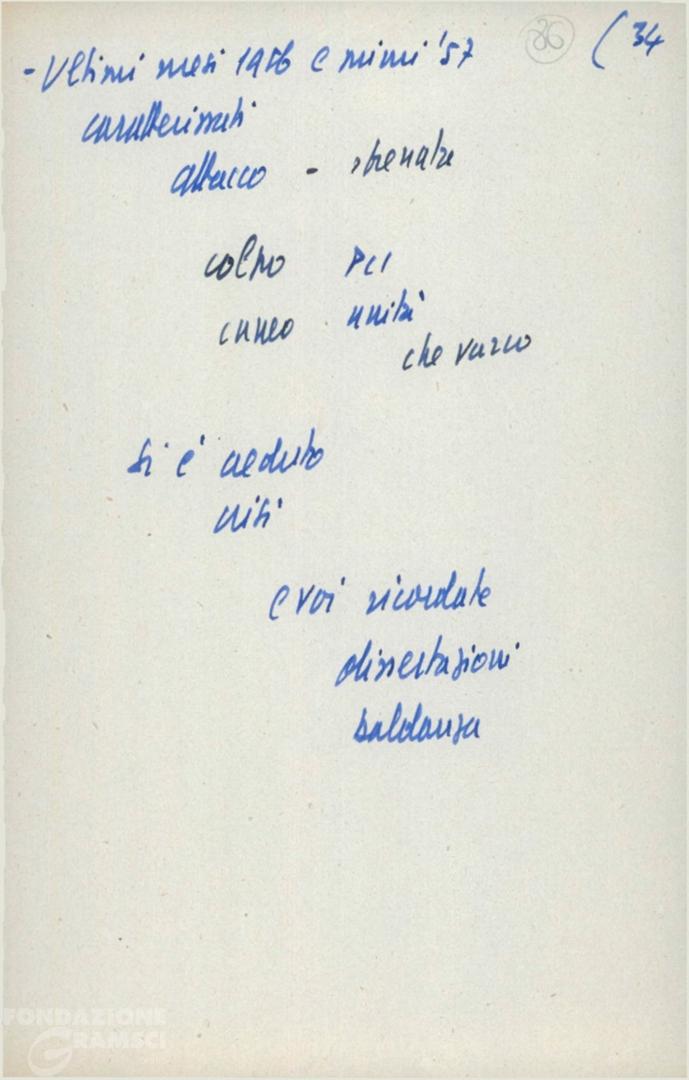 86 (34
- Ultimi mesi 1956 e primi '57
caratterizzati
attacco - sfrenato
colpo PCI
cuneo unità
che varco
Si è creduto
crisi
e voi ricordate
dissertazioni
baldanza
FONDAZIONE
GRAMSCI